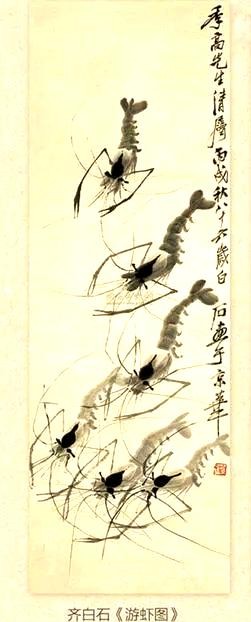 季高先生清属 丙戌秋八十六岁白石画于京华
齐白石《游虾图》